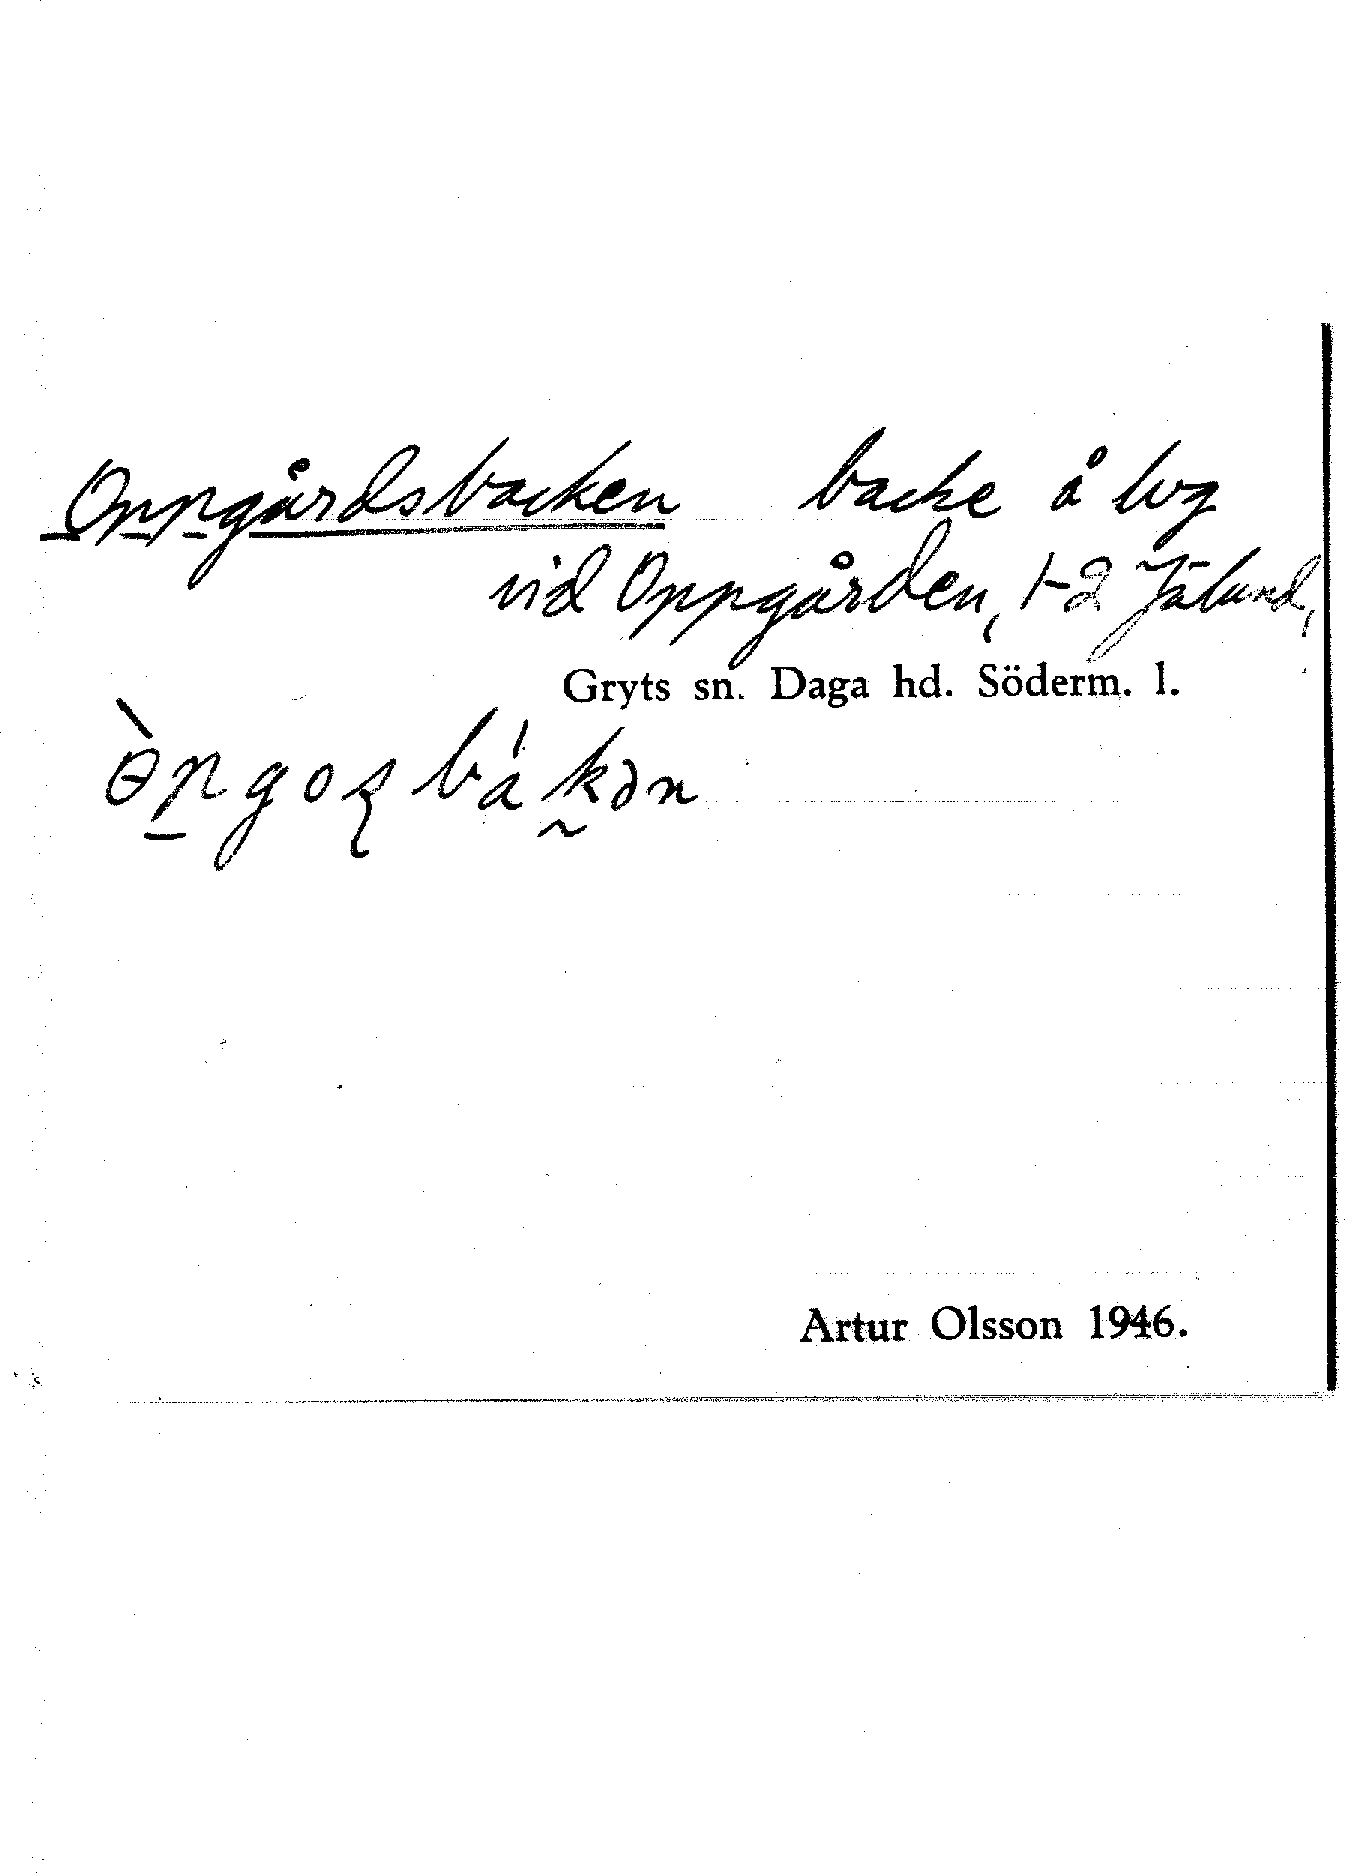 Oppgårdsbacken backe å lvg
vid Oppgården, 1-2 Jälund,
Gryts sn. Daga hd. Söderm. l.
Artur Olsson 1946.